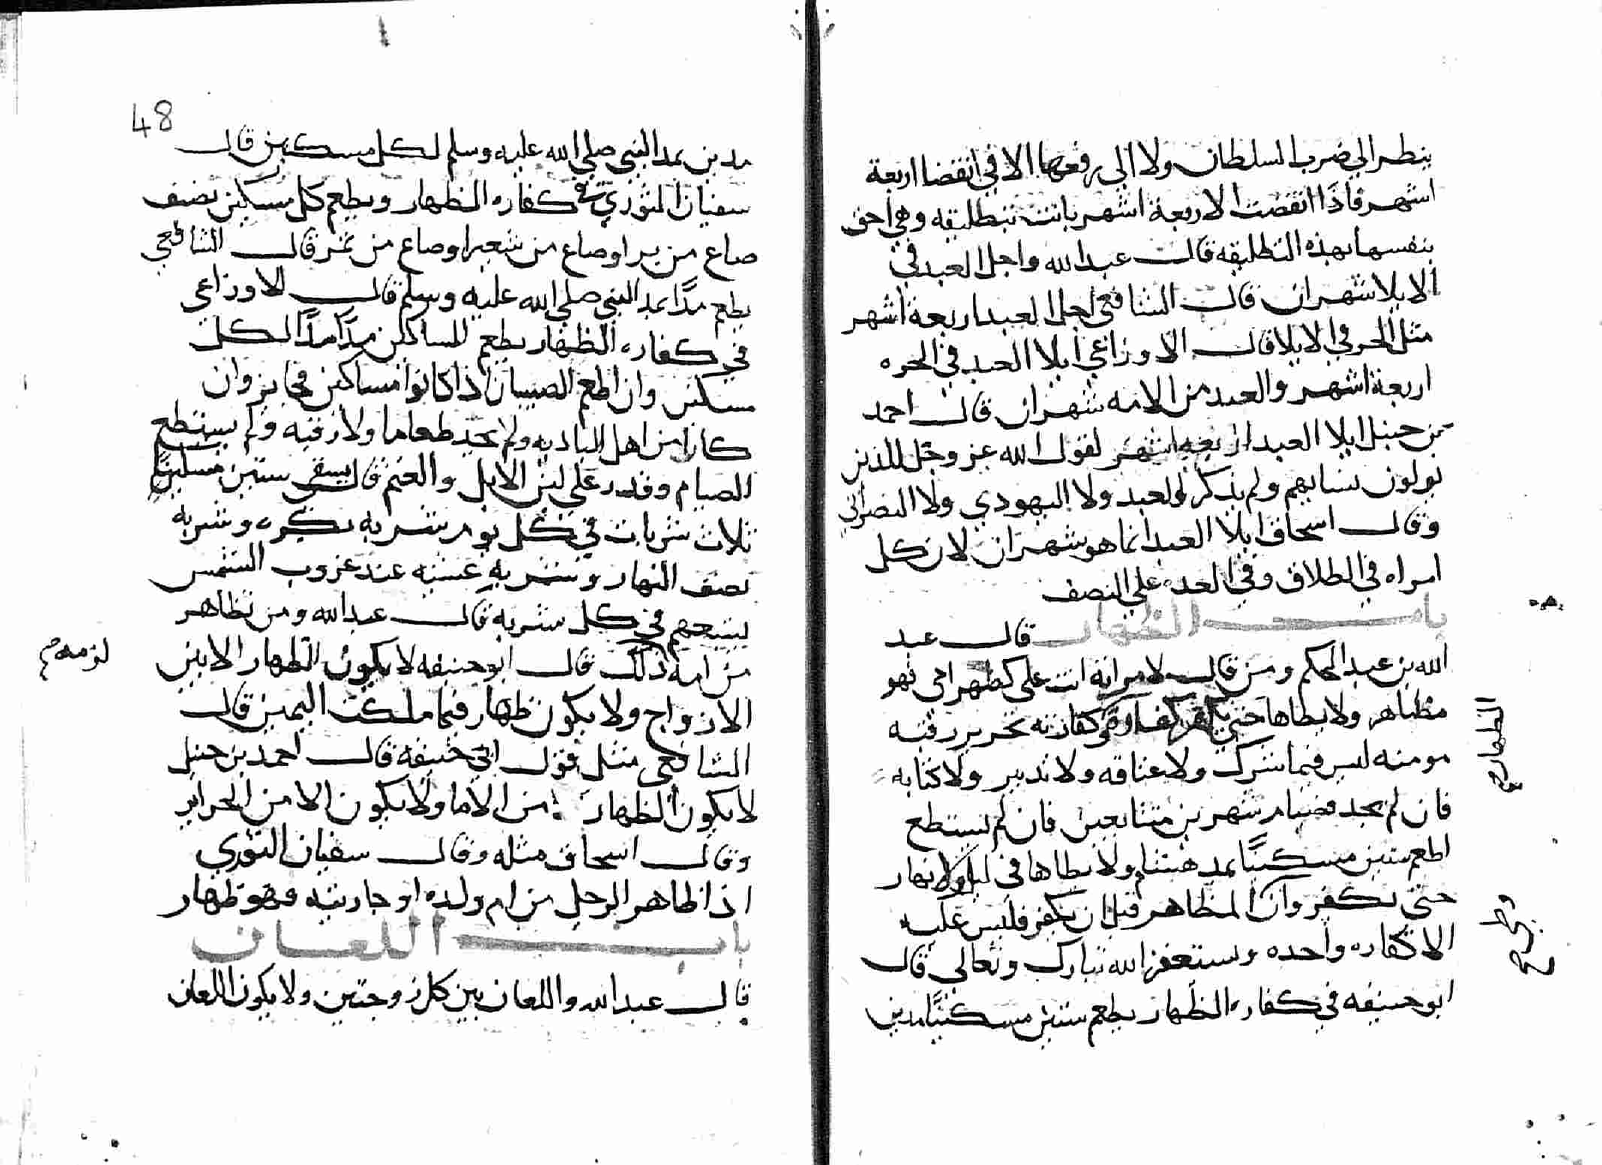 ينظر الى ضرب السلطان ولا الى رفعها الا في انقضا اربعة
اشهر فاذا انقضت الاربعة اشهر بانت بتطليقه وهي احق
بنفسها بهذه التطليقه قال عبد الله واجل العبد في
الايلا شهران قال الشافعي اجل العبد اربعة اشهر
مثل الحر في الايلا قال الاوزاعي ايلا العبد في الحره
اربعة اشهر والعبد من الامه شهران قال احمد
بن حنبل ايلا العبد اربعه اشهر لقول الله عز وجل للذين
يولون من نسايهم ولم يذكر لعبد ولا اليهودي ولا النصراني
وقال اسحاق ايلا العبد انما هو شهران لان كل
امراه في الطلاق وفي العده على النصف
باب الظهار قال عبد
الله بن عبد الحكم ومن قال لامراته انت على كظهر امي فهو
مظاهر ولا يطاها حتى يكفر كفارة وكفارته تحرير رقبه
مومنه ليس فيها شرك ولا عتاقه ولا تدبير ولا كتابه
فان لم يجد فصيام شهرين متتابعين فان لم يستطع
اطعم ستين مسكينًا بمد هشام ولا يطاها في ليل ولا نهار
حتى يكفر وان المظاهر قبل ان يكفر فليس عليه
الا كفاره واحده ويستغفر الله تبارك وتعالى قال
ابو حنيفه في كفاره الظهار يطعم ستين مسكينًا مدين
الظهار
48
مدين بمد النبي صلى الله عليه وسلم لكل مسكين قال
سفيان الثوري في كفاره الظهار ويطعم كل مسكين نصف
صاع من بر او صاع من شعير او صاع من تمر قال الشافعي
يطعم مدًا بمد النبي صلى الله عليه وسلم قال الاوزاعي
في كفاره الظهار يطعم المساكين مدًا مدًا لكل
مسكين وان اطعم الصبيان اذا كانوا مساكين فجايز وان
كان من اهل الباديه ولم يجد طعاما ولا رقبه ولم يستطع
الصيام وقدر على لبن الابل والغنم قال يسقي ستين مسكينًا
ثلاث شربات في كل يوم شربه بكره وشربه
نصف النهار وشربه عشيه عند غروب الشمس
يشبعهم في كل شربه قال عبد الله ومن تظاهر
من امة ذلك قال ابو حنيفه لا يكون الظهار الا بين
الازواج ولا يكون ظهار فيما ملكت اليمين قال
الشافعي مثل قول ابي حنيفه قال احمد بن حنبل
لا يكون الظهار من الاما ولا يكون الا من الحراير
وقال اسحاق مثله وقال سفيان الثوري
اذا ظاهر الرجل من ام ولده او جاريته فهو ظهار
باب اللعان
قال عبد الله واللعان بين كل زوجتين ولا يكون اللعان
لزمه